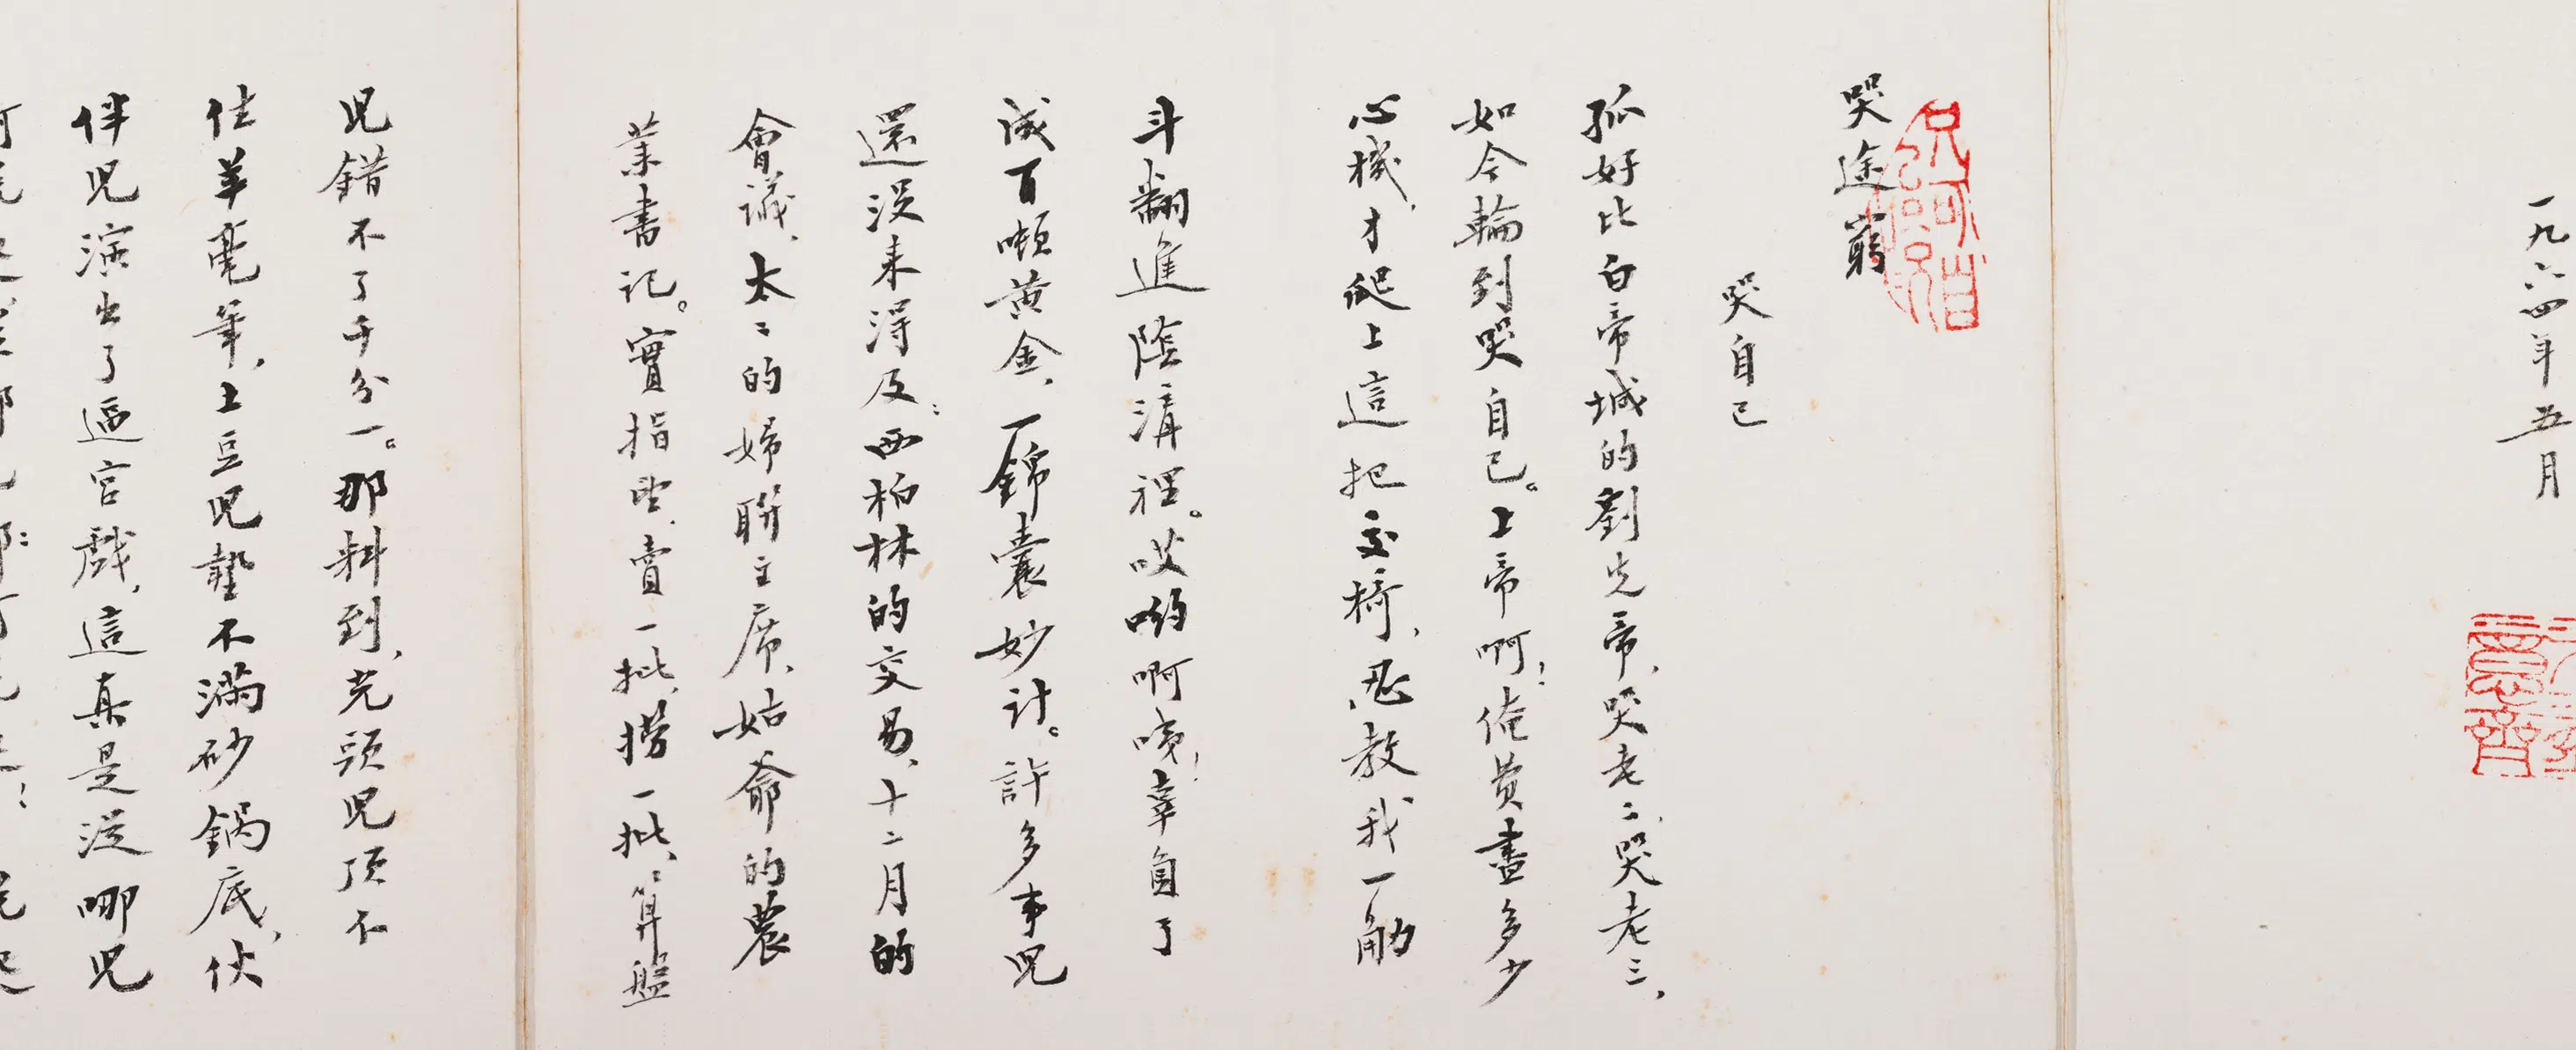 一九六四年五月
哭途窮
哭自己
孤好比白帝城的劉先帝，哭老二，哭老三，
如今輪到哭自己。上帝啊！俺費盡多少
心機，才爬上這把交椅，忍教我一觔
斗翻進陰溝裡。哎喲啊咦！辜負了
成百噸黃金，一錦囊妙計。許多事兒
還沒來得及：西柏林的交易，十二月的
會議，太太的婦聯主席，姑爺的農
業書記。實指望，賣一批，撈一批，算盤
兒錯不了千分一。那料到，光頭兒頂不
住羊毫筆，土豆兒墊不滿砂鍋底，伙
伴兒演出了逼宮戲，這真是從哪兒